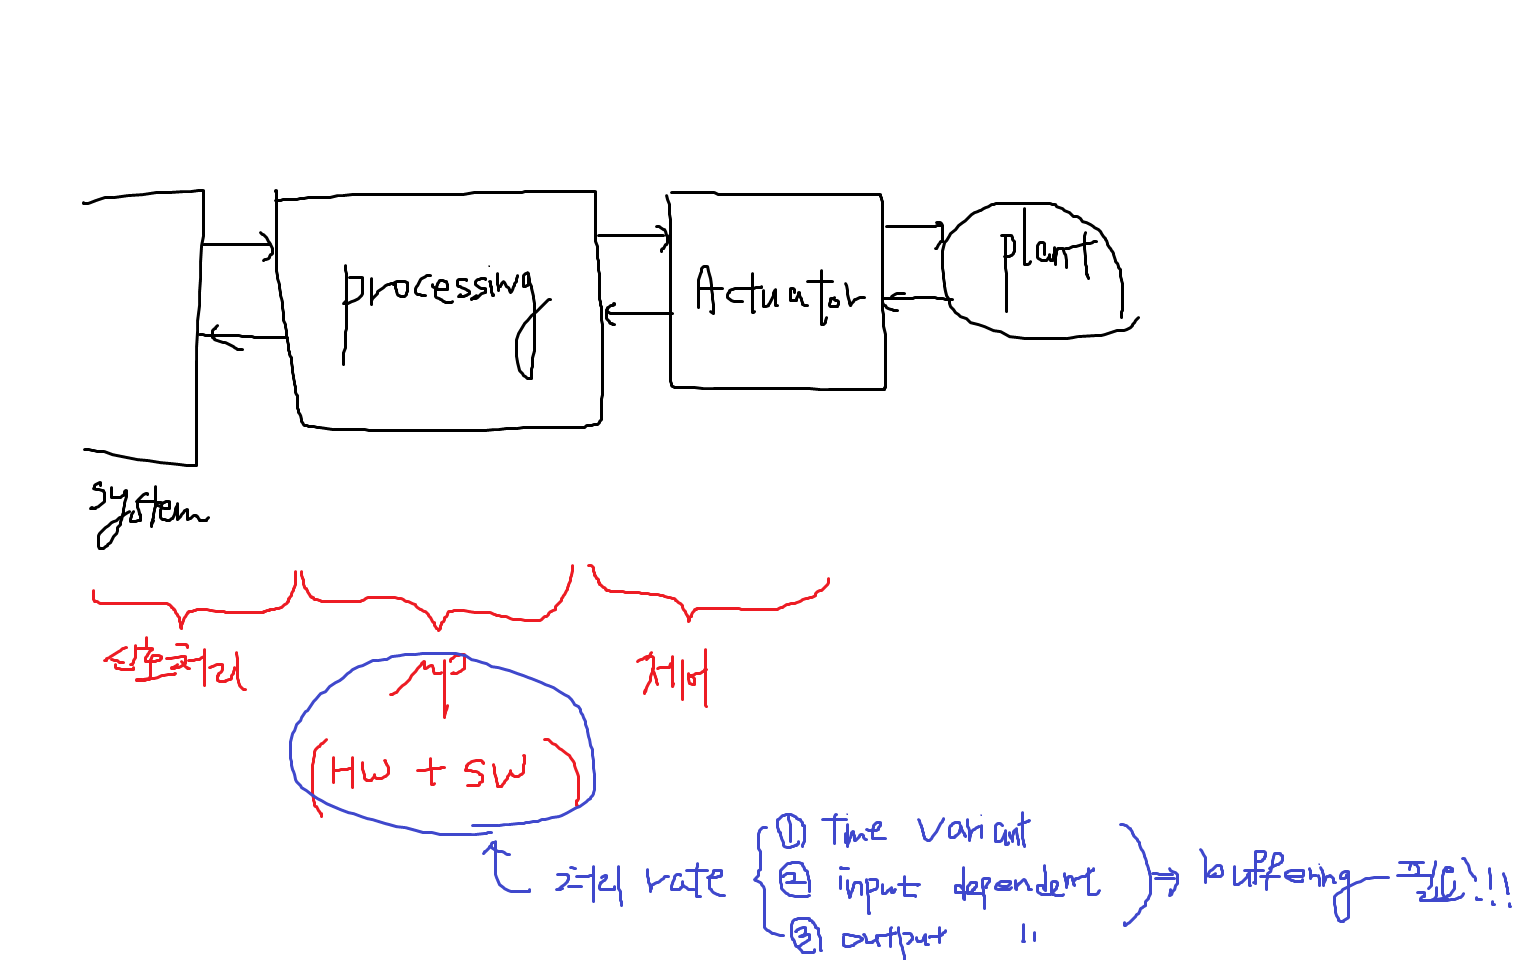 processing
Actuator
plant
system
신호처리
μp
제어
(HW + SW)
처리 rate
① Time Variant
② input dependent
③ output 〃
⇒ buffering 필요!!!